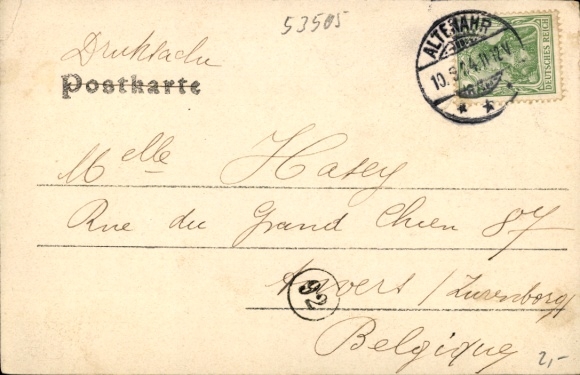 53505
Druksache
Postkarte
ALTENAHR
DEUTSCHES REICH
Melle Hasey
Rue du Grand Chien 87
Anvers / Zurenborg
92
Belgique
2,-